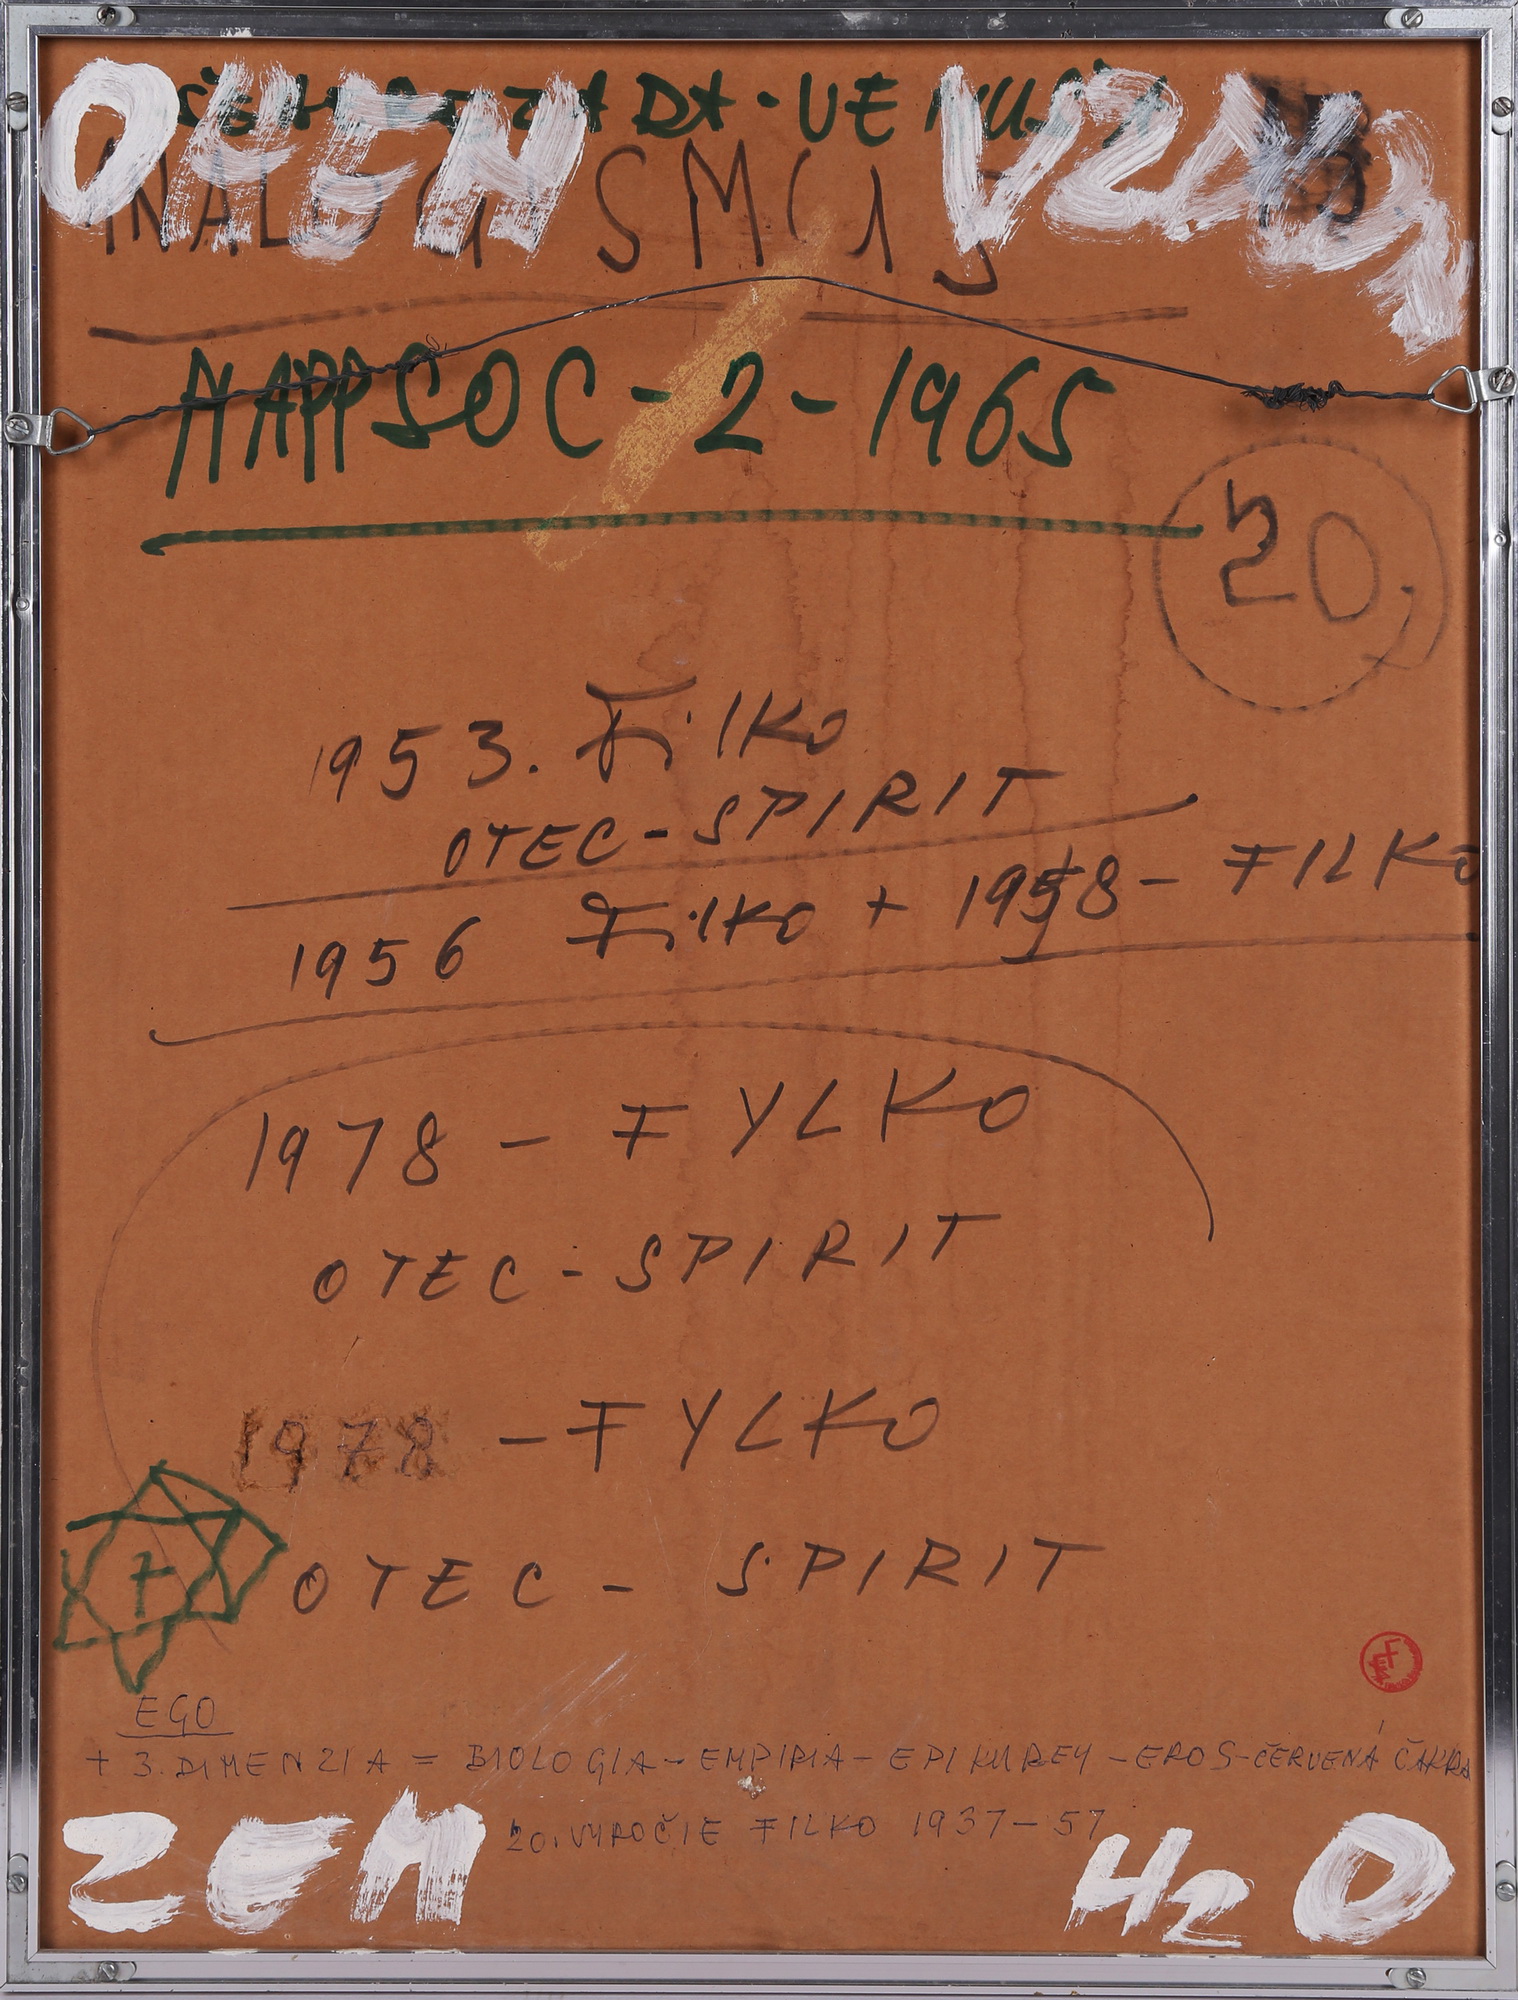 OHEŇ VZDUCH
HAPPSOC-2-1965
20,
1953. Filko
OTEC-SPIRIT
1956 Filko + 1958- FILKO
1978 - FYLKO
OTEC - SPIRIT
1978 - FYLKO
7 OTEC - SPIRIT
EGO
+ 3. DIMENZIA = BIOLOGIA - EMPIRIA - EPIKUREY - EROS - ČERVENÁ ČAKRA
20. VYROČIE FILKO 1937-57
ZEM H2O